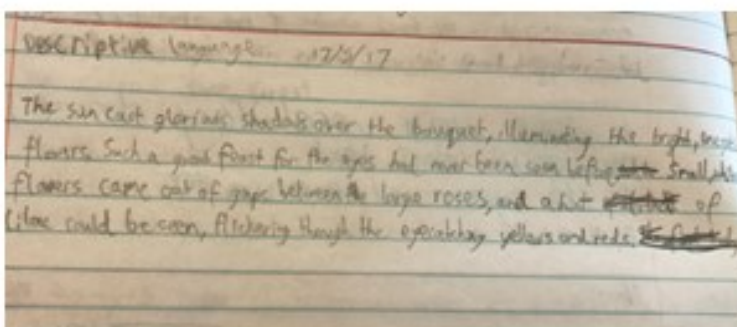 Descriptive language. 12/5/17
The sun cast glorious shadows over the bouquet, illuminating the bright, these
flowers. Such a good feast for the eyes had never been seen before. Small,
flowers came out of gaps between the large roses, and a hint of
lilac could be seen, flickering through the eyecatching yellows and reds.